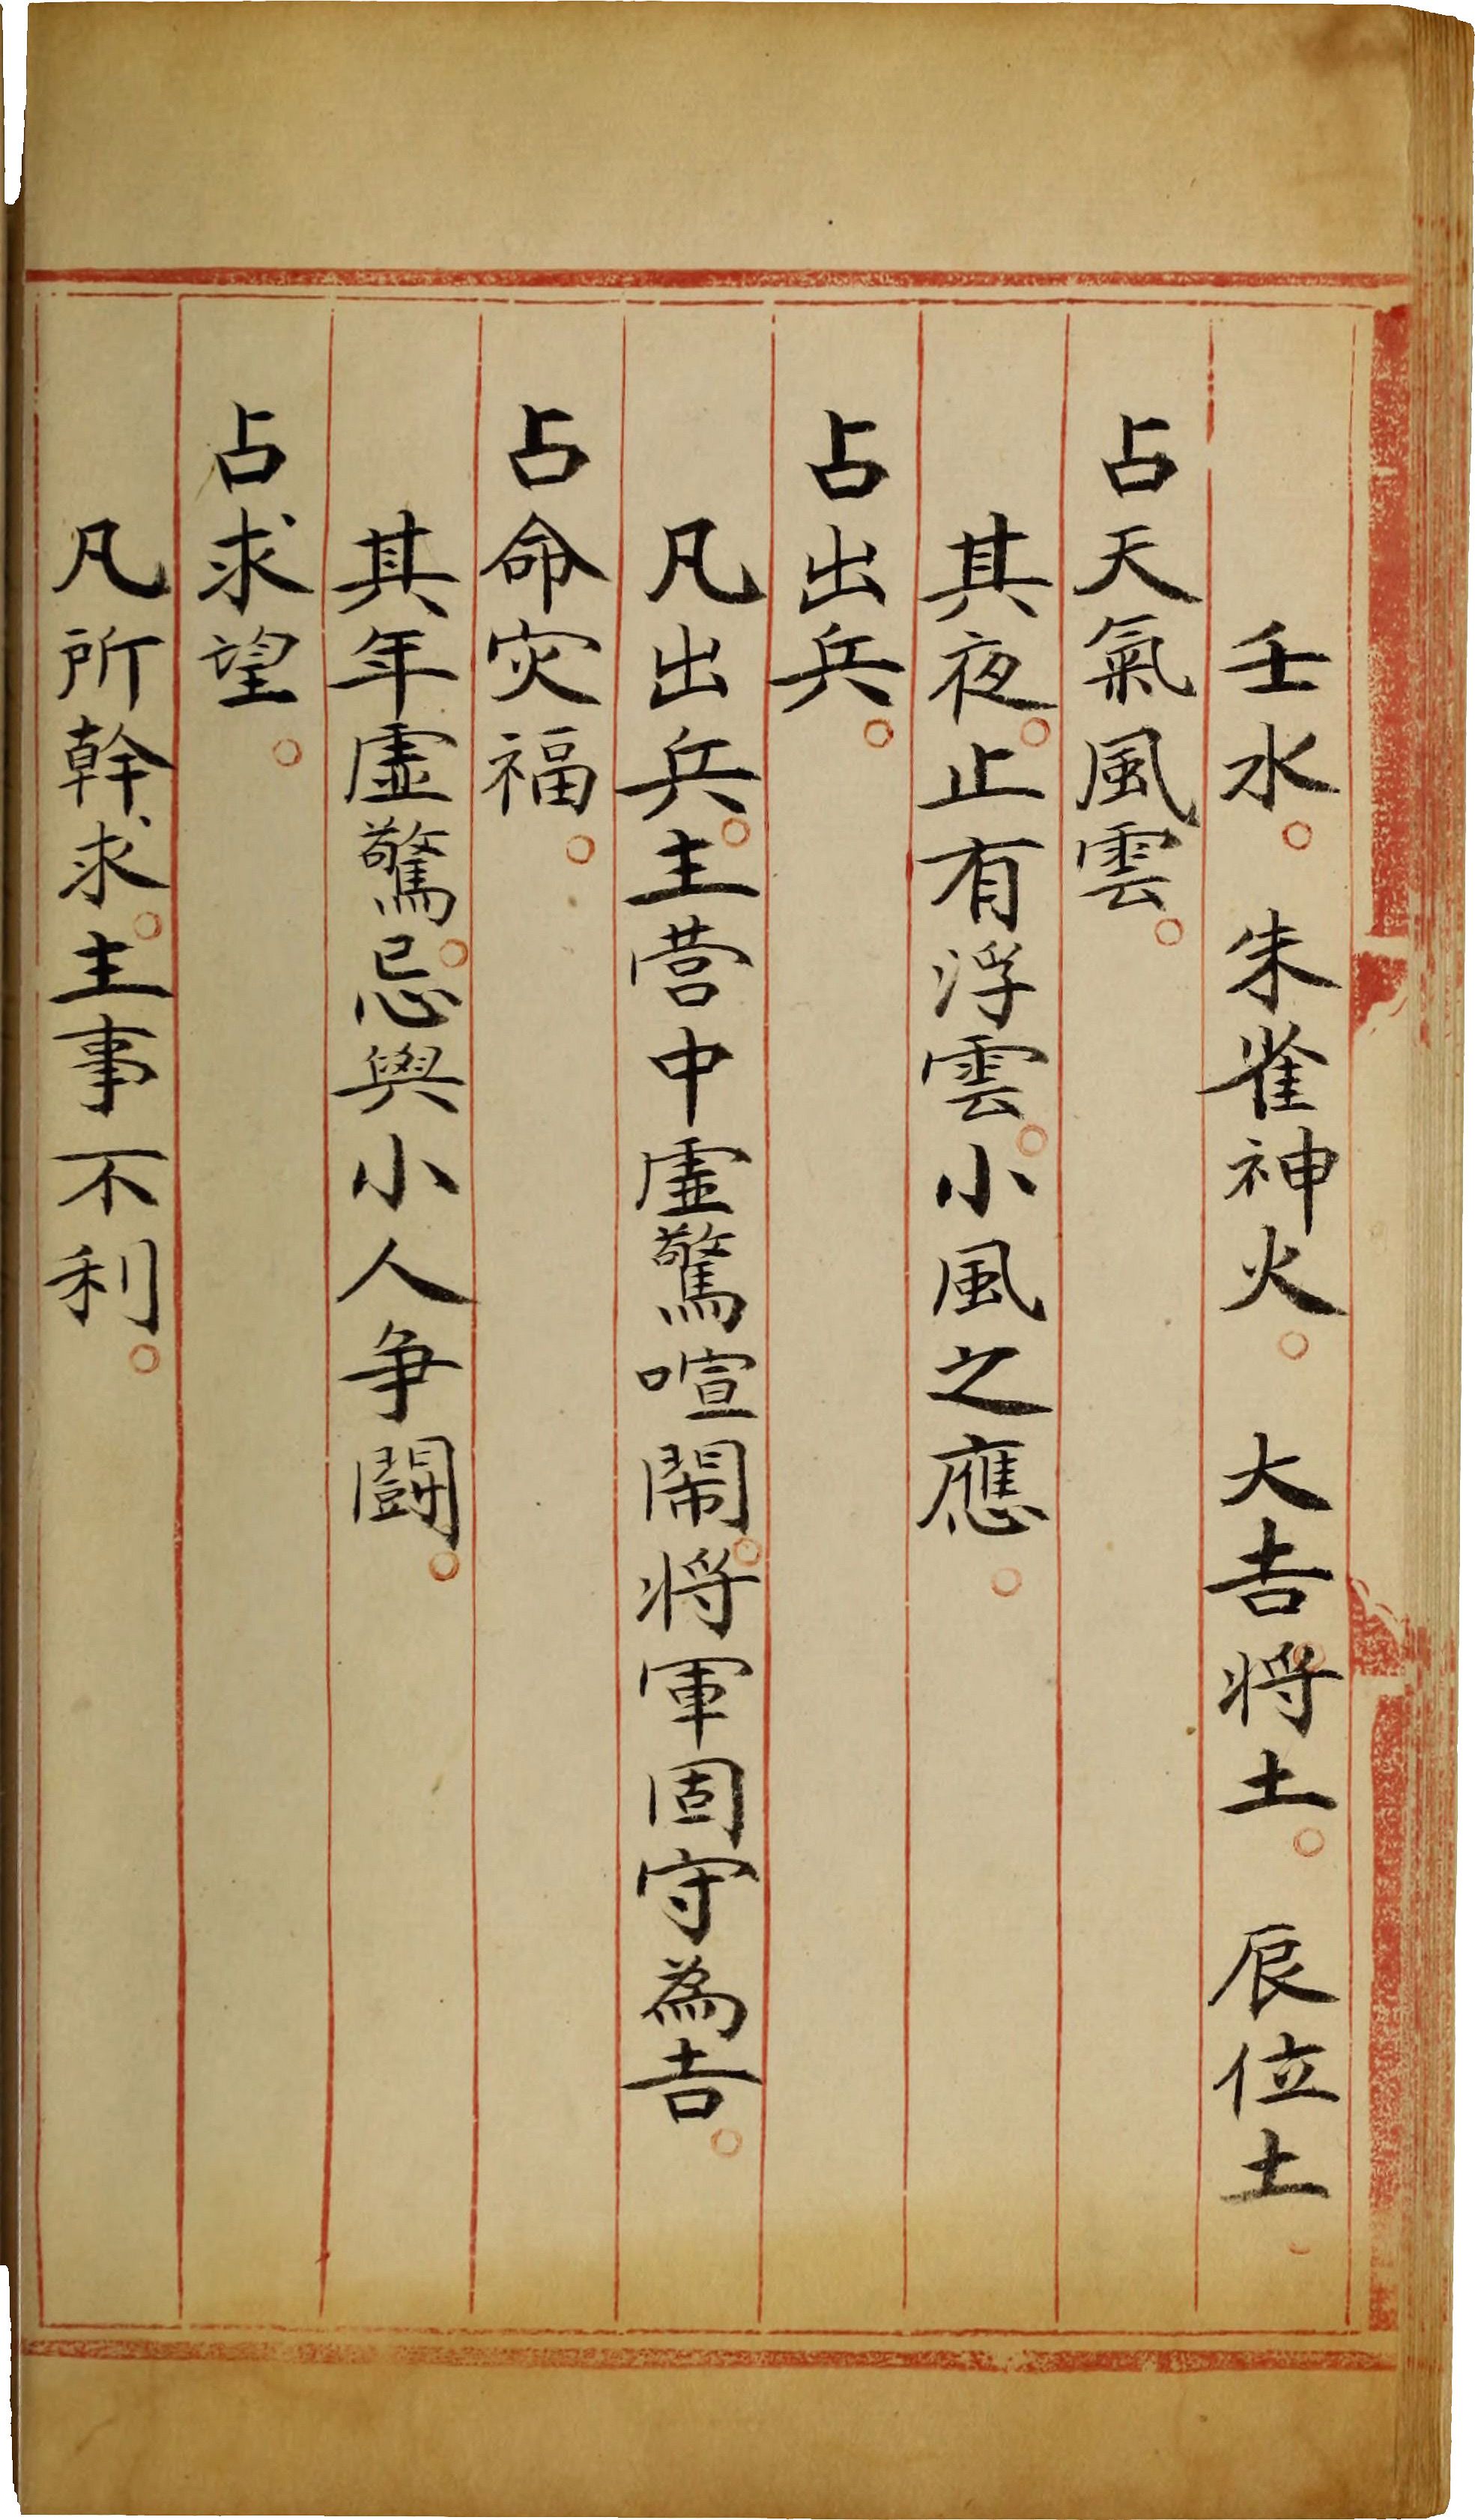 壬水。朱雀神火。大吉將土。辰位土。
占天氣風雲。
其夜。止有浮雲。小風之應。
占出兵。
凡出兵。主营中虛驚喧鬧。將軍固守為吉。
占命灾福。
其年虛驚。忌與小人爭鬪。
占求望。
凡所幹求。主事不利。